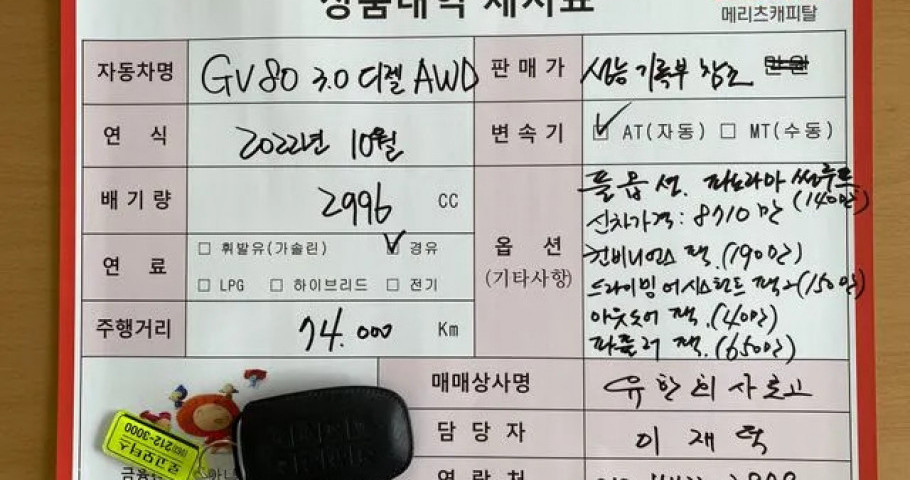 상품내역 제시표
메리츠캐피탈
자동차명 GV80 3.0 디젤 AWD
판매가 성능기록부 참조 만원
연 식 2022년 10월
변속기 ☑ AT(자동) ☐ MT(수동)
배기량 2996 CC
연 료 ☐ 휘발유(가솔린) ☑ 경유
☐ LPG ☐ 하이브리드 ☐ 전기
주행거리 74.000 Km
옵 션
(기타사항)
풀옵션. 파노라마 썬루프
(140만)
신차가격: 8710만
컨비니언스 팩.(190만)
드라이빙어시스턴트 팩2(150만)
아웃도어 팩.(40만)
파퓰러 팩.(650만)
매매상사명
담당자 이재
연락처
로고모터스
212-3000